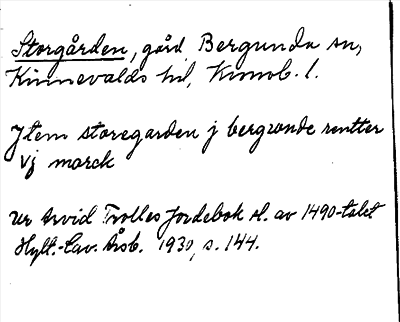 Storgården, gård, Bergunda sn,
Kinnevalds hd, Kronob. l.
Jtem storegarden j bergwnde rentter
vj marck
Ur Arvid Trolles Jordebok sl. av 1490-talet
Hylt.-Cav. Årsb. 1930, s. 144.